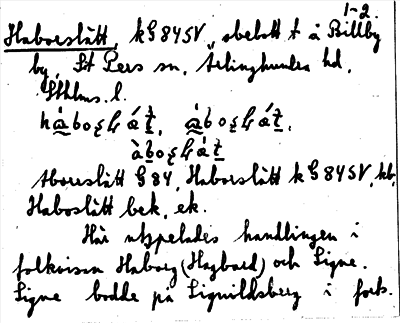 1-2.
Haborslätt, k G 84 SV, obebott t å Billby
by, St Pers sn, Ärlinghundra hd,
Sthlms l.
håbosläṭ, åbosläṭ,
àbosläṭ
Aboreslätt G 84, Haborslätt k G 84 SV, hb,
Haboslätt bek, ek.
Här utspelades handlingen i
folkvisan Haborg (Hagbard) och Signe.
Signe bodde på Signildsberg i fors.